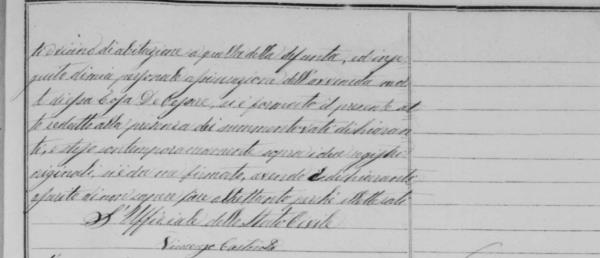 te vicine di abitazione a quella della defunta, ed in se
guito di mia personale assicurazione dell'avvenuta mor
te di essa Rosa De Cesare, si è formato il presente at
to redatto alla presenza dei summentovati dichiaran
ti, e steso contemporaneamente sopra i due registri
originali, si è da me firmato, avendo i dichiaranti
asserito di non sapere fare altrettanto perché illetterati
L'Uffiziale dello Stato Civile
Vincenzo